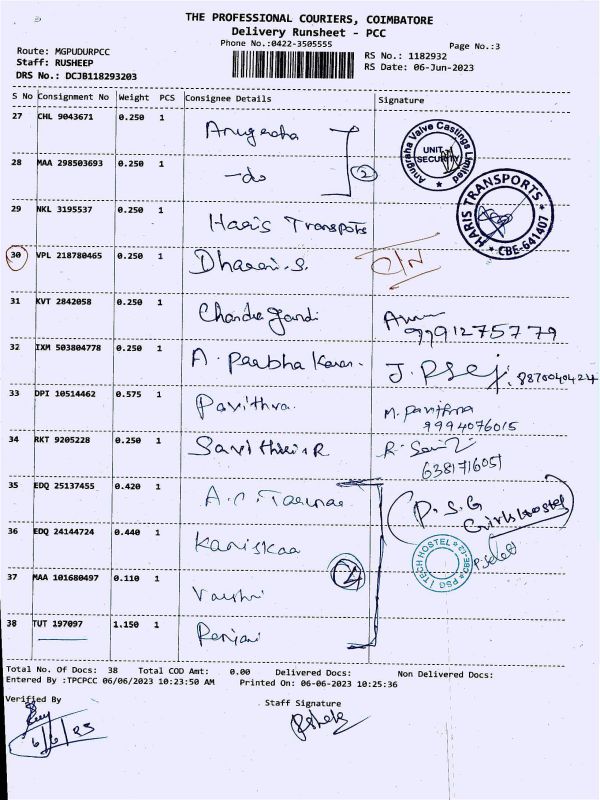 THE PROFESSIONAL COURIERS, COIMBATORE
Delivery Runsheet - PCC
Phone No.:0422-3505555
Page No.:3
Route: MGPUDURPCC
Staff: RUSHEEP
DRS No.: DCJB118293203
RS No.: 1182932
RS Date: 06-Jun-2023
S No Consignment No Weight PCS Consignee Details Signature
27 CHL 9043671 0.250 1 Anugraha
Anugraha Valve Castings Limited UNIT SECURITY
28 MAA 298503693 0.250 1 -do 2
29 NKL 3195537 0.250 1 Haris Transpots
HARIS TRANSPORTS CBE-641407
30 VPL 218780465 0.250 1 Dharani.S.
31 KVT 2842058 0.250 1 Chandra Gandi
32 IXM 503804778 0.250 1 A. Prabhakaran.
33 DPI 10514462 0.575 1 Pavithra. M. Pavithra
9994076015
34 RKT 9205228 0.250 1
35 EDQ 25137455 0.420 1 P.S.G
Girls Hostel
36 EDQ 24144724 0.440 1 Kaniskaa
PSG ITECH HOSTEL
37 MAA 101680497 0.110 1 4
38 TUT 197097 1.150 1 Renjani
Total No. Of Docs: 38 Total COD Amt: 0.00 Delivered Docs: Non Delivered Docs:
Entered By :TPCPCC 06/06/2023 10:23:50 AM Printed On: 06-06-2023 10:25:36
Verified By Staff Signature
6/6/23